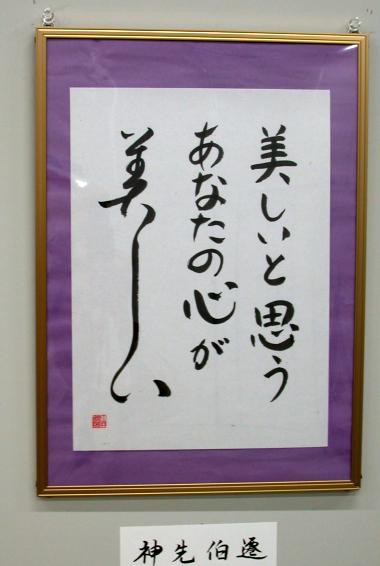 美しいと思う
あなたの心が
美しい
神先伯遷